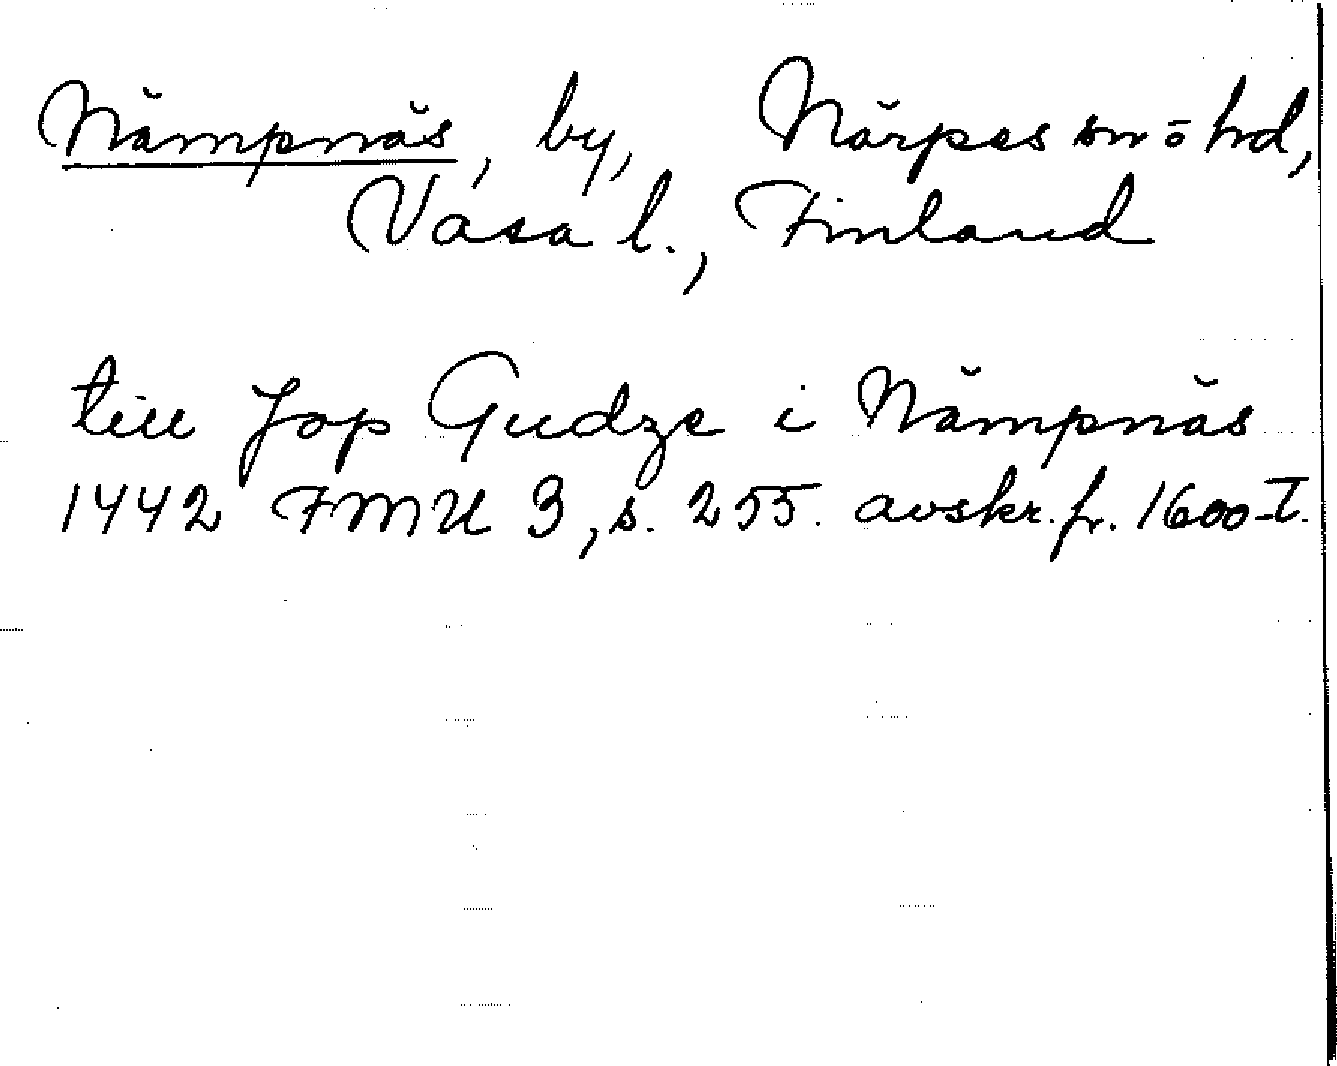 Nämpnäs, by, Närpes sn o hd,
Vasa l., Finland
till Jop Gudze i Nämpnäs
1442 FMU 3, s. 255. avskr. fr. 1600-t.